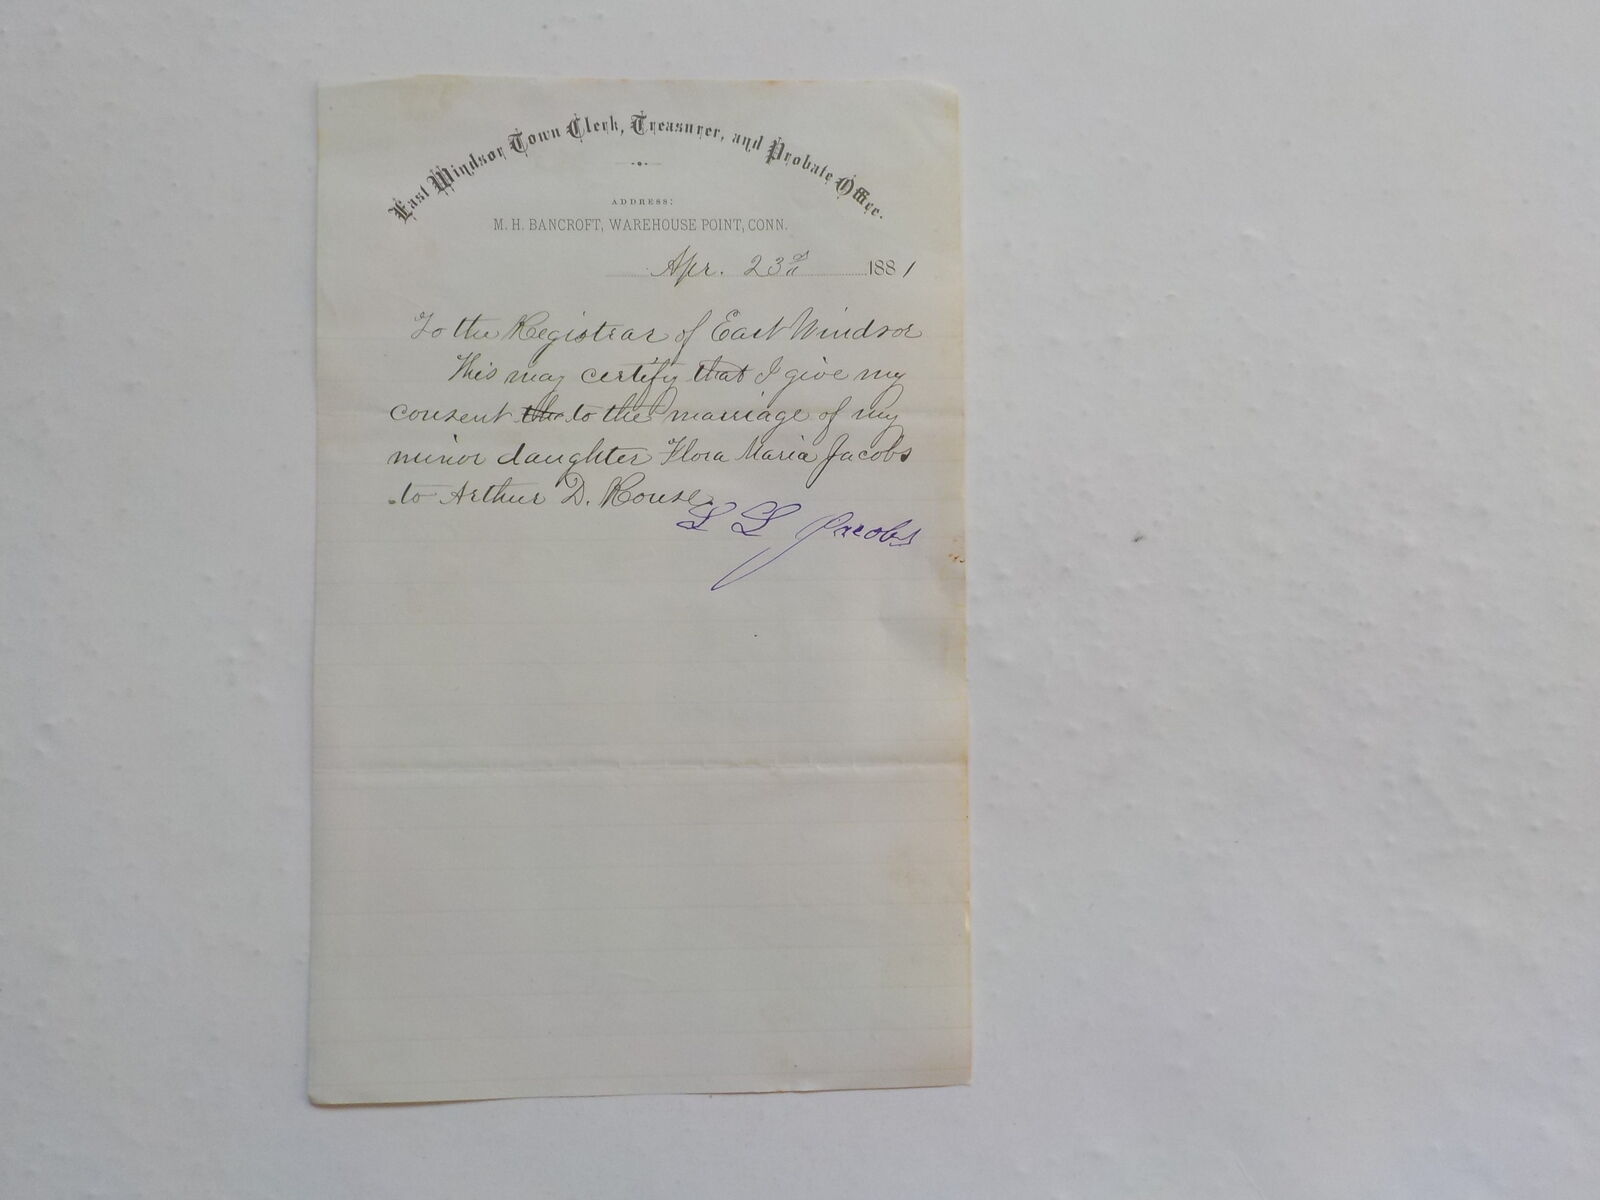 East Windsor Town Clerk, Treasurer, and Probate Office.
ADDRESS:
M. H. BANCROFT, WAREHOUSE POINT, CONN.
Apr. 23rd 1881
To the Registrar of East Windsor
This may certify that I give my
consent the to the marriage of my
minor daughter Flora Maria Jacobs
to Arthur D. House.
L L Jacobs